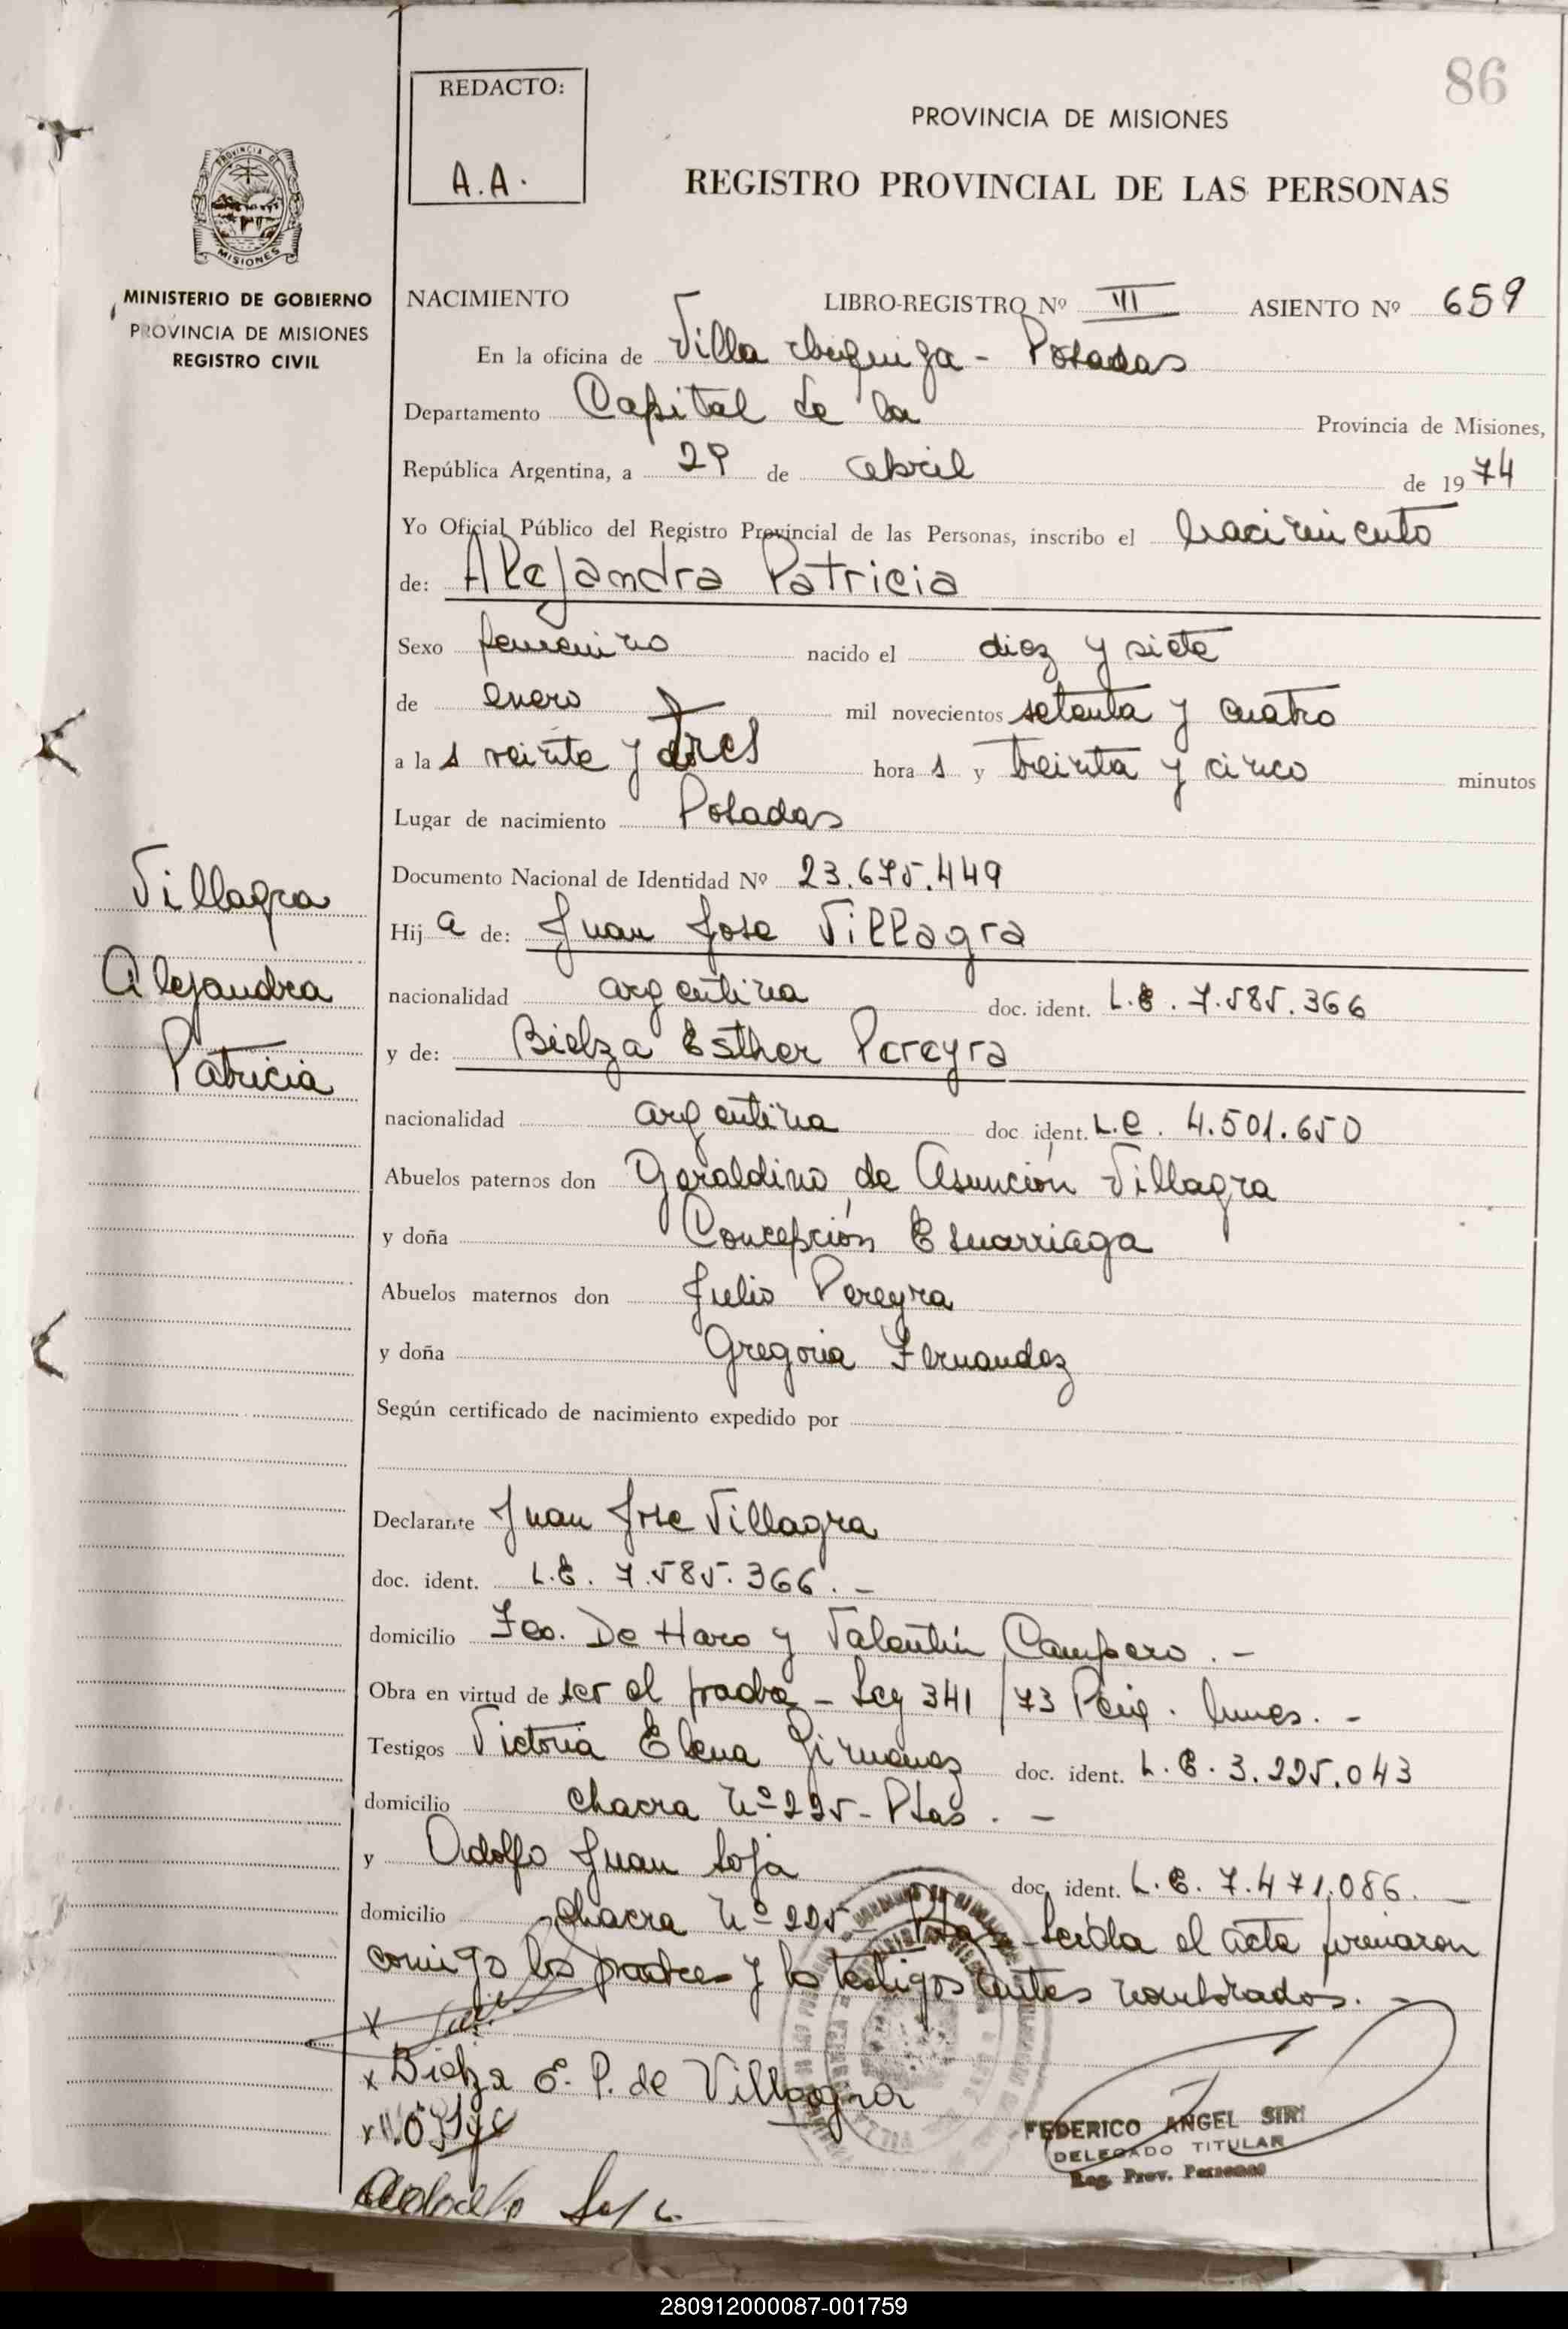 86
REDACTO:
A.A.
PROVINCIA DE MISIONES
REGISTRO PROVINCIAL DE LAS PERSONAS
PROVINCIA DE
MISIONES
MINISTERIO DE GOBIERNO
PROVINCIA DE MISIONES
REGISTRO CIVIL
NACIMIENTO LIBRO-REGISTRO Nº III ASIENTO Nº 659
En la oficina de Villa - Posadas
Departamento Capital de la Provincia de Misiones,
República Argentina, a 29 de abril de 1974
Yo Oficial Público del Registro Provincial de las Personas, inscribo el nacimiento
de: Alejandra Patricia
Sexo femenino nacido el diez y siete
de enero mil novecientos setenta y cuatro
a la s veinte y tres hora s y treinta y cinco minutos
Lugar de nacimiento Posadas
Documento Nacional de Identidad Nº 23.675.449
Villagra
Alejandra
Patricia
Hij a de: Juan Jose Villagra
nacionalidad argentina doc. ident. L.E. 7.585.366
y de: Bielza Esther Pereyra
nacionalidad argentina doc ident. L.C. 4.501.650
Abuelos paternos don Geraldino de Asunción Villagra
y doña Concepción
Abuelos maternos don Julio Pereyra
y doña Gregoria Fernandez
Según certificado de nacimiento expedido por
Declarante Juan Jose Villagra
doc. ident. L.E. 7.585.366. -
domicilio Fco. De Haro y Valentín Campero. -
Obra en virtud de ser el padre - Ley 341/73 -
Testigos Victoria Elena Gimenez doc. ident. L.C. 3.225.043
domicilio chacra nº 225 - Pdas. -
y Adolfo Juan Soja doc. ident. L.E. 7.471.086. -
domicilio chacra nº 225 - Pdas - Leida el acta firmaron
comigo los padres y los testigos antes nombrados. -
x
x Bielza E. P. de Villagra
x
FEDERICO ANGEL SIRI
DELEGADO TITULAR
Reg. Prov. Personas
280912000087-001759